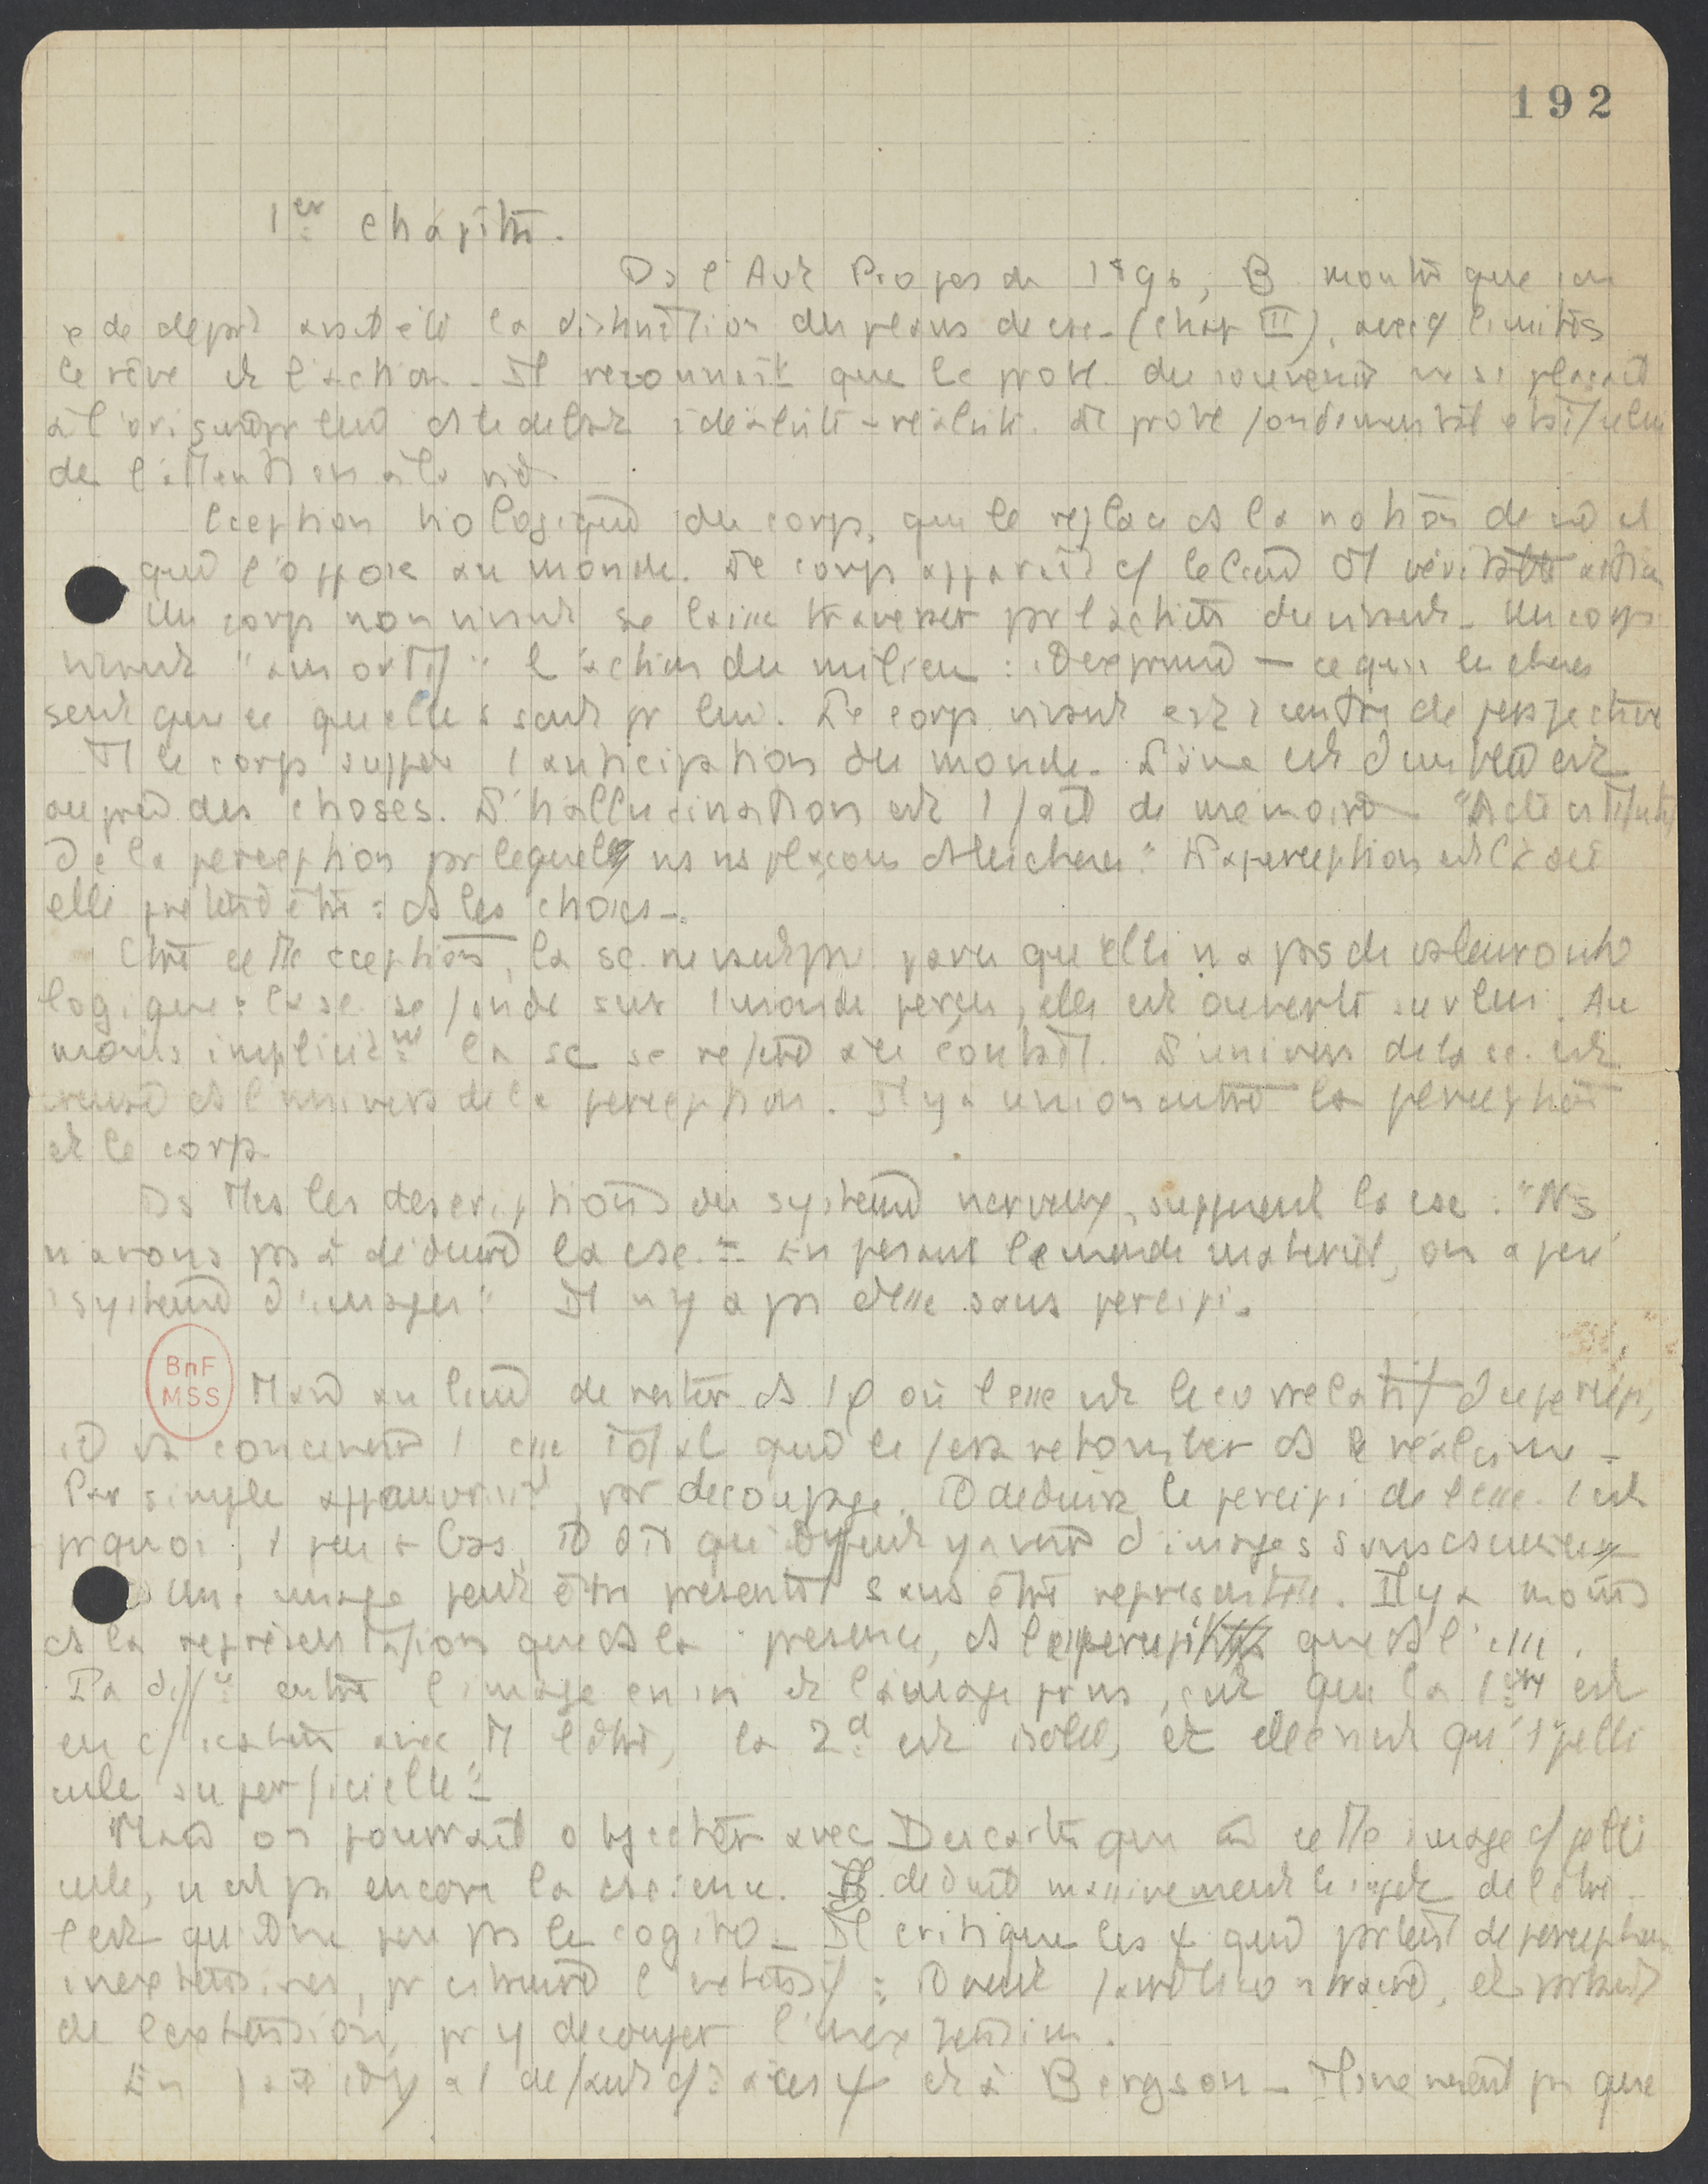 192
1er chapitre.
Ds l'Avt Propos de 1896, B montre que son
de départ avait été la distinction des plans de csc. (chap III), avec c/ limites
le rêve et l'action. Il reconnait que le probl. du souvenir ne se plaçait
à l'origine pr lui ds le débat idéalité-réalité. Le probl fondamental était celui
de l'attention à la vie
ception biologique du corps, qui le replace ds la notion de vie et
qui l'oppose au monde. Le corps apparait c/ le lieu d'1 véritable action
Un corps non vivant se laisse traverser pr l'activité du vivant. Un corps
vivant "amortit" l'action du milieu : il n'exprime - ce que les choses
sont que ce qu'elles sont pr lui. Le corps vivant est 1 centre de perspective
Tt le corps suppose l'anticipation du monde.
auprès des choses. L'hallucination est 1 fait de mémoire "L'acte constitutif
de la perception par lequel ns ns plaçons ds les choses". La perception est là où
elle prétend être : ds les choses.
Ctre cette cception, la sc. ne vaut pas parce qu'elle n'a pas de valeur onto
logique : la sc. se fonde sur 1 monde perçu, elle est ouverte sur lui. Au
moins implicitmt la sc se réfère à ce contact. L'univers de la sc. est
creusé ds l'univers de la perception. Il y a union entre la perception
et le corps
Ds ttes les descriptions du système nerveux, supposent la csc : "Ns
n'avons pas à déduire la csc. = En posant le monde matériel, on a posé
1 système d'images" Il n'y a pas d'esse sans percipi.
BnF
MSS
Mais au lieu de rester ds 1 φ où l'esse est le corrélatif du percipi,
il va concevoir 1 esse total qui le fera retomber ds le réalisme -
Par simple appauvrissmt, par découpage. Il déduira le percipi de l'esse. C'est
pquoi, 1 peu + bas, il dit qu'il peut y avoir d'images sans cscience
Une image peut être présente sans être représentée. Il y a moins
ds la représentation que ds la présence, ds le percipi que ds l'esse.
La diffce entre l'image en soi et l'image pr ns, c'est que la 1ère est
en c/ication avec tt l'être, la 2de est isolée, et elle n'est qu'1 "pelli
cule superficielle"
Mais on pourrait objecter avec Descartes que cette image c/ pelli
cule, n'est pas encore la cscience. Il déduit massivement le sujet de l'être.
C'est qu'il ne pose pas le cogito - Il critique les φ qui partent de perceptions
inextensives, pr cstruire l'extensif : Il veut faire le contraire, et partant
de l'extension, pr y découper l'inextension.
En fait il y a 1 défaut c/ à ces φ et à Bergson - Ils ne voient pas que